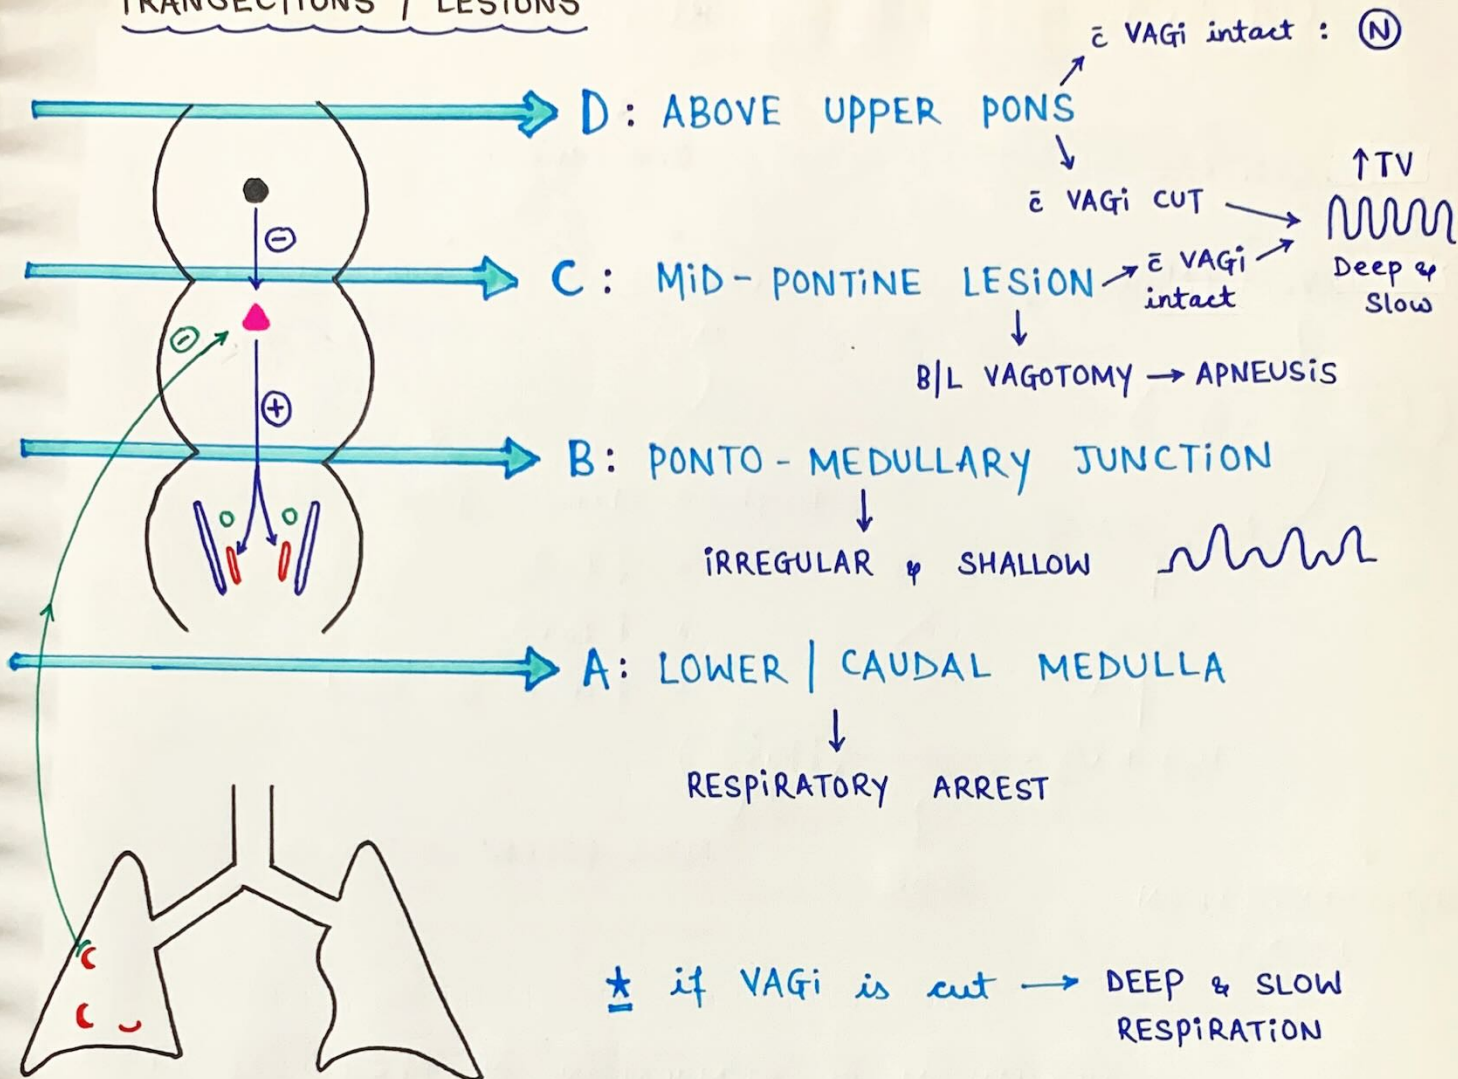 TRANSECTIONS / LESIONS
c̄ VAGi intact : Ⓝ
D: ABOVE UPPER PONS
↑TV
c̄ VAGi CUT
Deep &
Slow
C: MiD-PONTiNE LESiON
c̄ VAGi
intact
B/L VAGOTOMY → APNEUSiS
⊖
⊖
⊕
B: PONTO-MEDULLARY JUNCTiON
iRREGULAR & SHALLOW
A: LOWER | CAUDAL MEDULLA
RESPiRATORY ARREST
* if VAGi is cut → DEEP & SLOW
RESPiRATiON